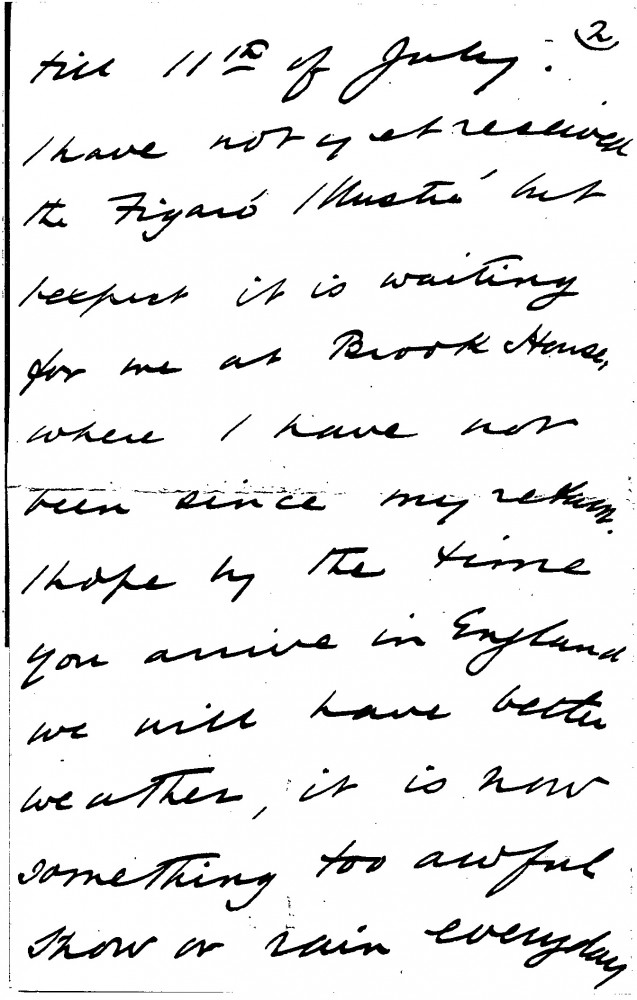 2
till 11th of July.
I have not yet received
the Figaró Illustré but
I expect it is waiting
for me at Brook House,
where I have not
been since my return.
I hope by the time
you arrive in England
we will have better
weather, it is now
something too awful
snow or rain everyday